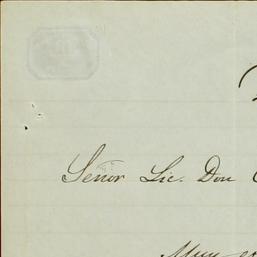 Señor Lic. Don
Muy